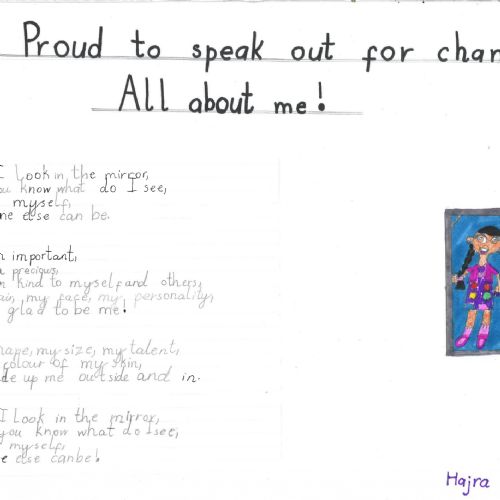 Proud to speak out for chan
All about me!
I look in the mirror,
ou know what do I see,
myself,
ne else can be.
m important,
precious,
kind to myself and others,
air, my face, my personality,
glad to be me!
hape, my size, my talent,
colour of my skin,
de up me outside and in.
I Look in the mirror,
you know what do I see,
myself,
e else can be!
Hajra